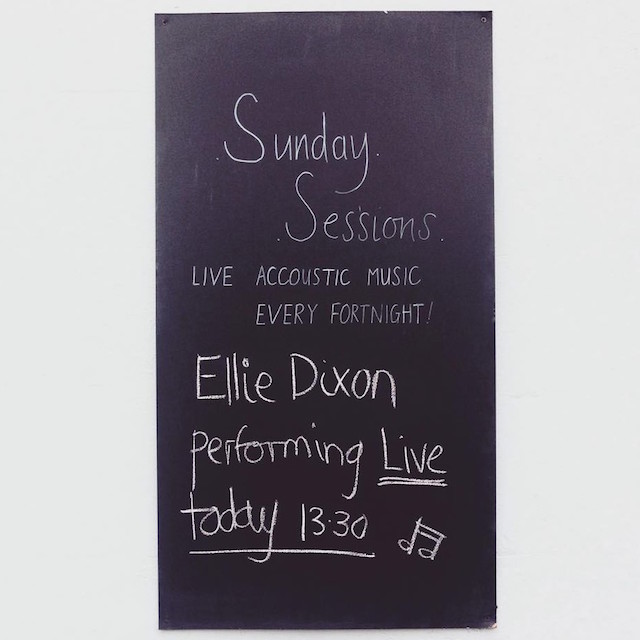 .Sunday.
.Sessions.
LIVE ACCOUSTIC MUSIC
EVERY FORTNIGHT!
Ellie Dixon
performing Live
today 13.30